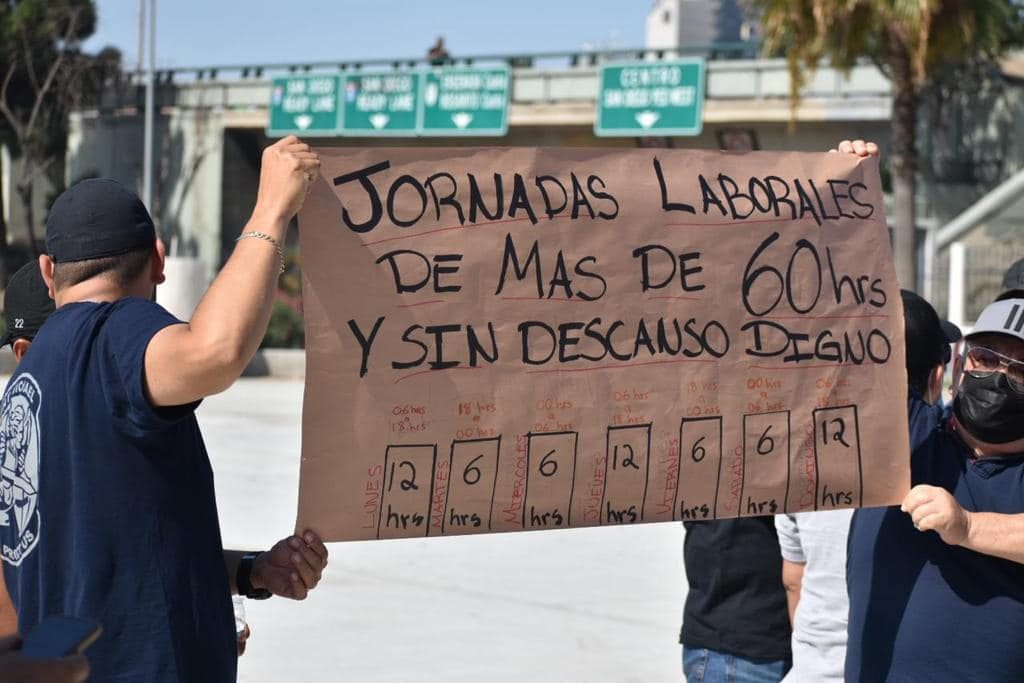 SAN DIEGO
READY LANE
SAN DIEGO
READY LANE
CENTRO
JORNADAS LABORALES
DE MAS DE 60hrs
Y SIN DESCANSO DIGNO
06 hrs
a
18 hrs
18 hrs
a
00 hrs
00 hrs
a
06 hrs
06 hrs
a
18 hrs
18 hrs
a
00 hrs
00 hrs
a
06 hrs
06 hrs
a
18 hrs
LUNES
12
hrs
MARTES
6
hrs
MIERCOLES
6
hrs
JUEVES
12
hrs
VIERNES
6
hrs
SABADO
6
hrs
DOMINGO
12
hrs
22